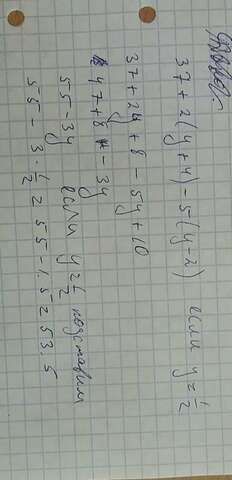 37+2(y+4)-5(y-2) если y=1/2
37+2y+8-5y+10
47+8-3y
55-3y если y=1/2 подставим
55-3·1/2=55-1.5=53.5